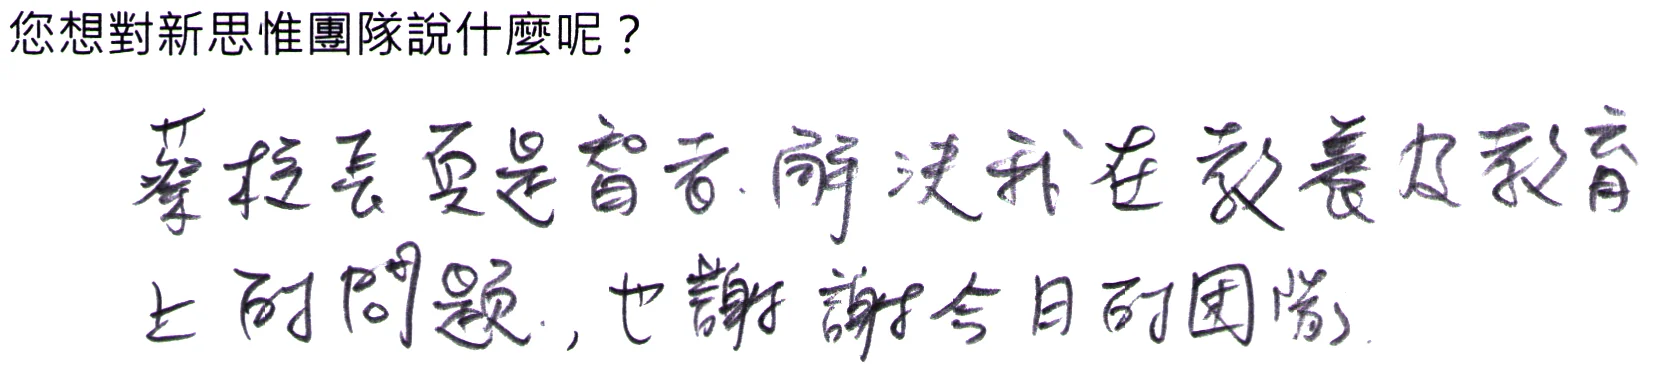 您想對新思惟團隊說什麼呢？
蔡校長真是智者.解決我在教養及教育
上的問題.，也謝謝今日的团隊.